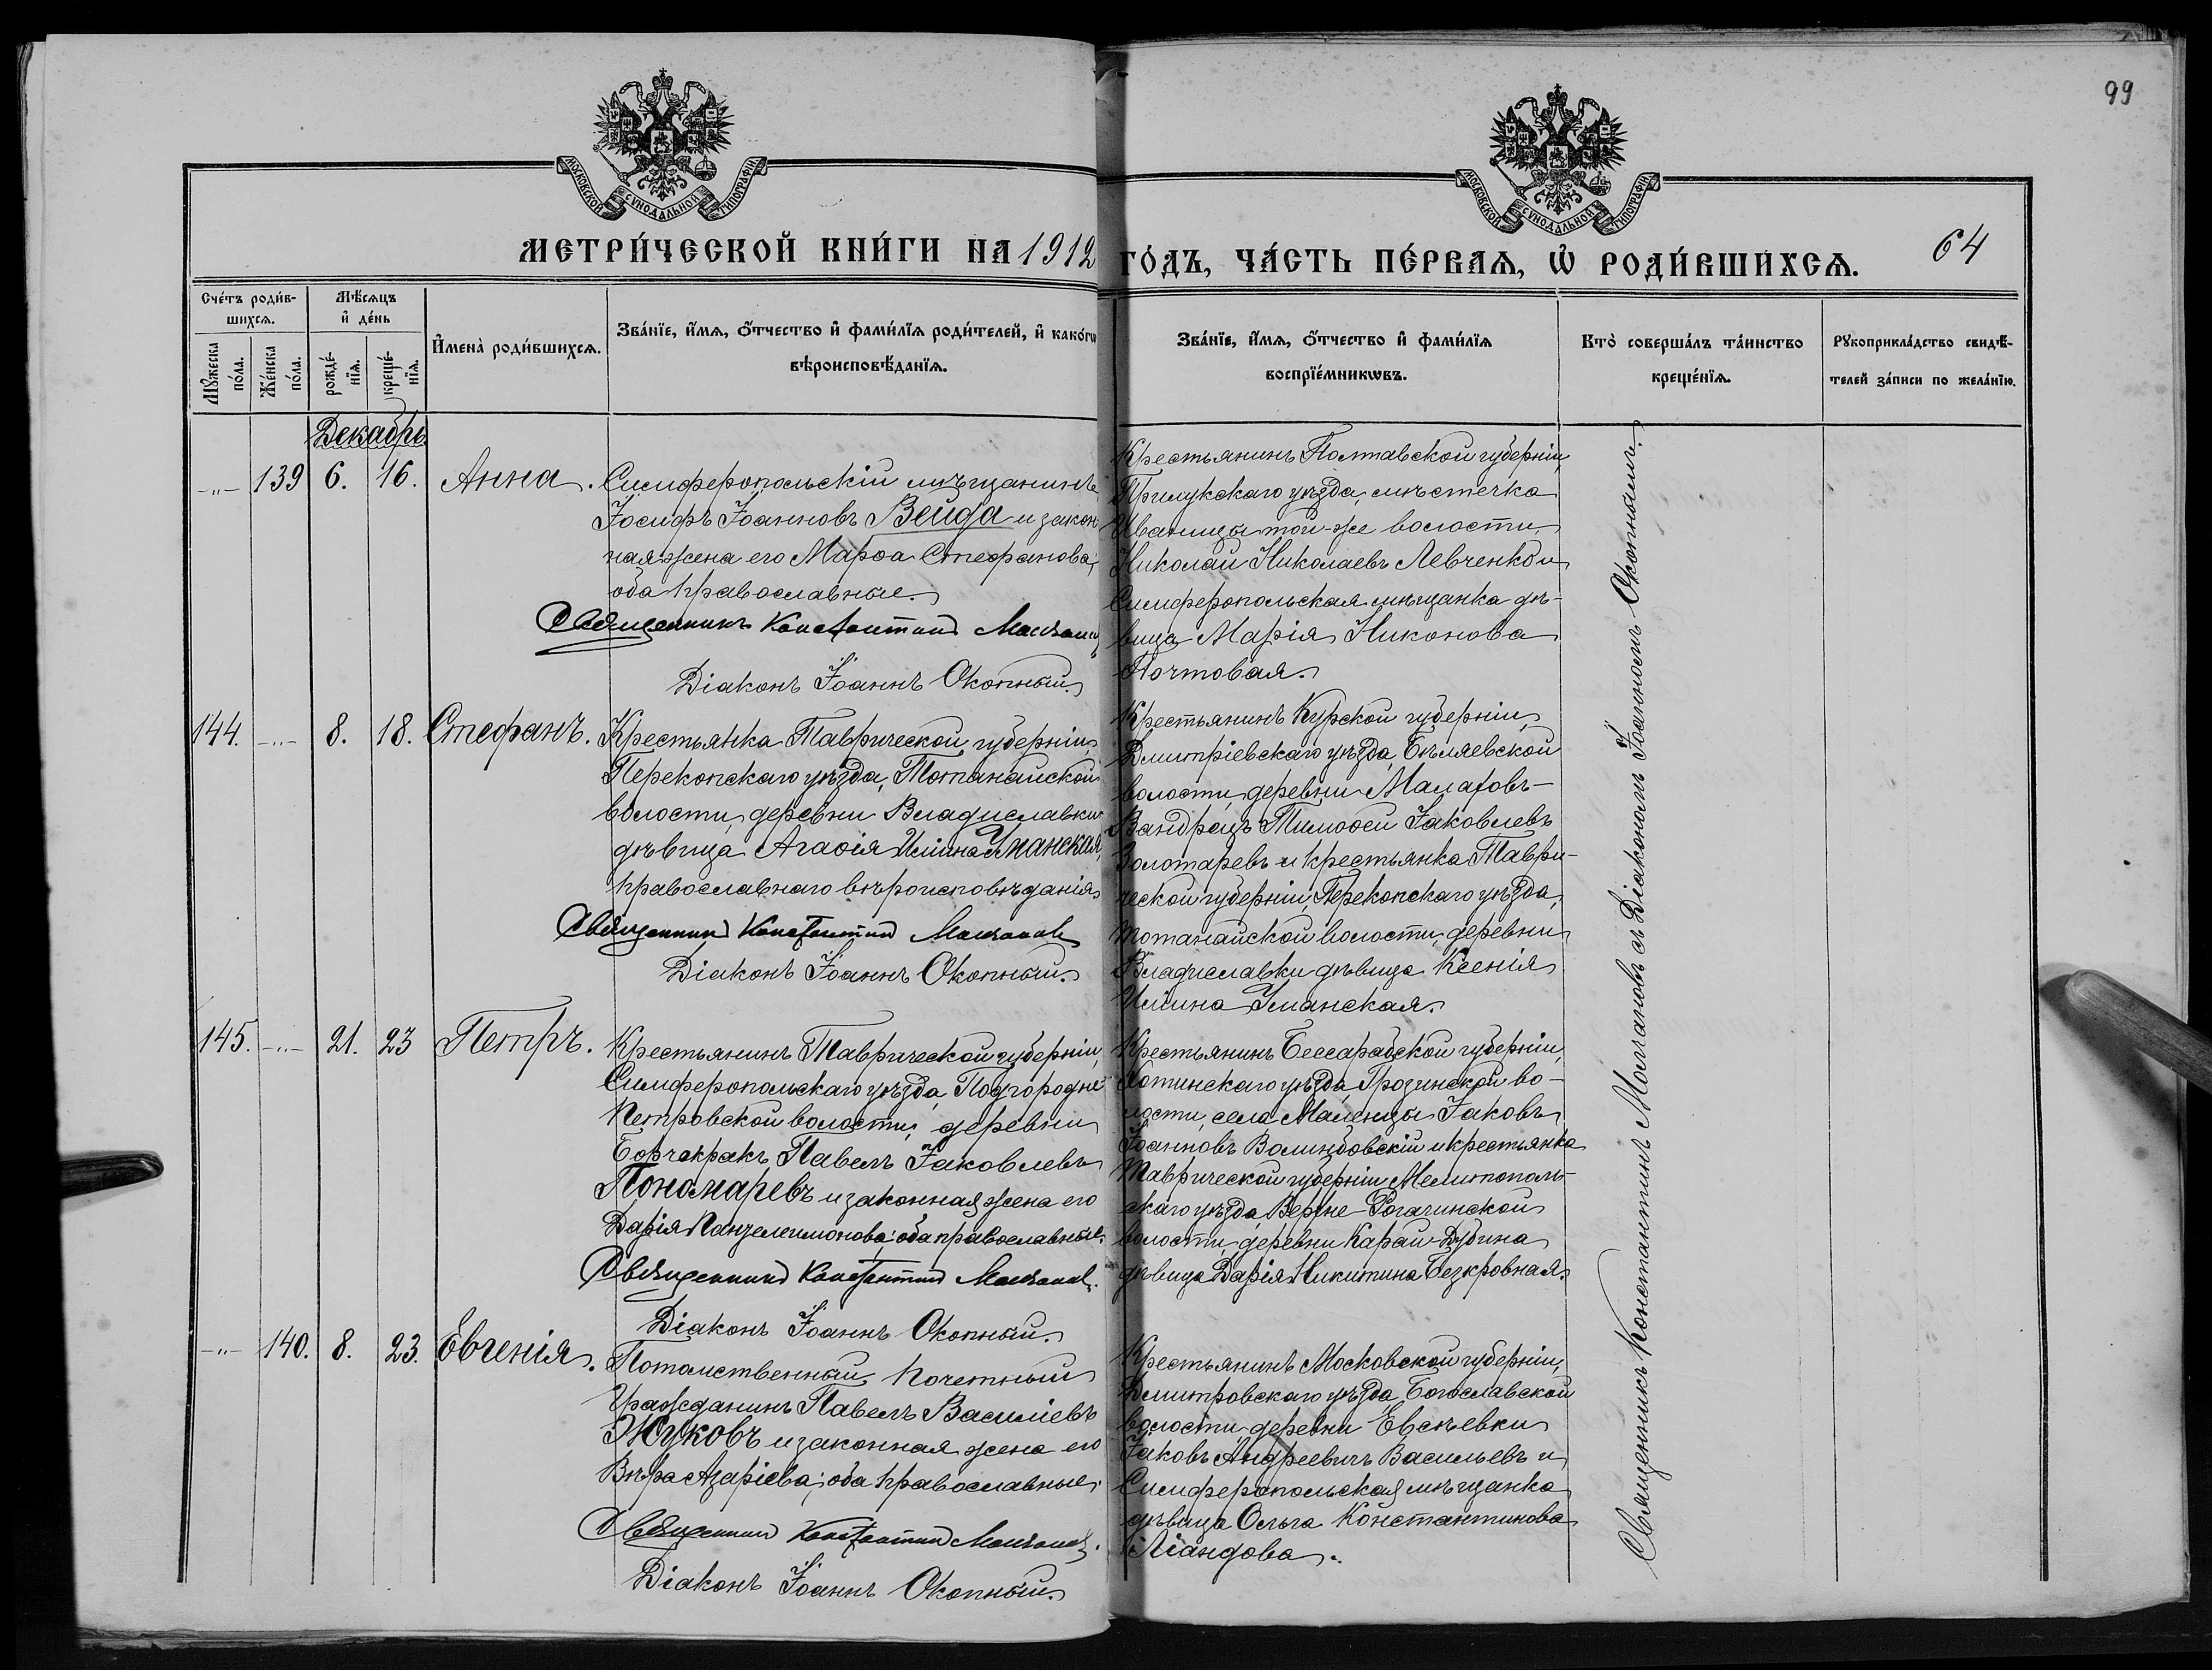 99
МОСКОВСКОЙ СѴНОДАЛЬНОЙ ТИПОГРАФІИ
МОСКОВСКОЙ СѴНОДАЛЬНОЙ ТИПОГРАФІИ
МЕТРИ́ЧЕСКОЙ КНИ́ГИ НА 1912 ГО́ДЪ, ЧА́СТЬ ПЕ́РВАѦ, Ѡ҆ РОДИ́ВШИХСѦ.
64
Сче́тъ роди́в-
шихсѧ.
Мꙋ́жеска по́ла.
Же́нска по́ла.
Мѣ́сѧцъ
и҆ де́нь
рожде́-
нїѧ.
креще́-
нїѧ.
И҆мена̀ роди́вшихсѧ.
Зва́нїе, и҆́мѧ, ѻ҆́тчество и҆ фами́лїѧ роди́телей, и҆ како́гѡ
вѣроисповѣ́данїѧ.
Зва́нїе, и҆́мѧ, ѻ҆́тчество и҆ фами́лїѧ
воспрїе́мникѡвъ.
Кто̀ соверша́лъ та́инство
креще́нїѧ.
Рꙋкоприкла́дство свидѣ́-
телей за́писи по жела́нїю.
Декабрь
-"- 139 6. 16. Анна.
Симферопольскій мѣщанинъ
Іосифъ Іоанновъ Вейда и закон
ная жена его Марѳа Стефанова;
оба православные.
Священникъ Константинъ Молчанов
Діаконъ Іоаннъ Окопный.
Крестьянинъ Полтавской губерніи,
Прилукскаго уѣзда, мѣстечка
Иваницы той-же волости,
Николай Николаевъ Левченко и
Симферопольская мѣщанка дѣ-
вица Марія Никонова
Почтовая.
144. -"- 8. 18. Стефанъ.
Крестьянка Таврической губерніи,
Перекопскаго уѣзда, Тотанайской
волости, деревни Владиславки
дѣвица Агаѳія Иліина Уманская,
православнаго вѣроисповѣданія
Священникъ Константинъ Молчановъ
Діаконъ Іоаннъ Окопный.
Крестьянинъ Курской губерніи,
Дмитріевскаго уѣзда, Бѣляевской
волости, деревни Малахов-
Тимоѳей Іаковлевъ
Золотаревъ и крестьянка Таври-
ческой губерніи, Перекопскаго уѣзда,
Тотанайской волости, деревни
Владиславки дѣвица Ксенія
Иліина Уманская.
145. -"- 21. 23 Петръ.
Крестьянинъ Таврической губерніи,
Симферопольскаго уѣзда, Подгородне
Петровской волости, деревни
Борчокракъ Павелъ Іаковлевъ
Пономаревъ и законная жена его
Дарія Пантелеимонова; оба православные.
Священникъ Константинъ Молчановъ.
Діаконъ Іоаннъ Окопный.
Крестьянинъ Бессарабской губерніи,
Хотинскаго уѣзда, Грозинской во-
лости, села Малинцы Іаковъ
Іоанновъ Волиндовскій и крестьянка
Таврической губерніи Мелитополь-
скаго уѣзда, Верхне-Рогачинской
волости, деревни Карай-Дубина
дѣвица Дарія Никитина Безкровная.
-"- 140. 8. 23. Евгенія.
Потомственный почетный
гражданинъ Павелъ Василіевъ
Жуковъ и законная жена его
Вѣра Азаріева; оба православные.
Священникъ Константинъ Молчановъ.
Діаконъ Іоаннъ Окопный.
Крестьянинъ Московской губерніи,
Дмитровскаго уѣзда, Богославской
волости, деревни Евсѣевки
Іаковъ Андреевичъ Васильевъ и
Симферопольская мѣщанка
дѣвица Ольга Константинова
Ліандова.
Священникъ Константинъ Молчановъ съ Діакономъ Іоанномъ Окопнымъ.